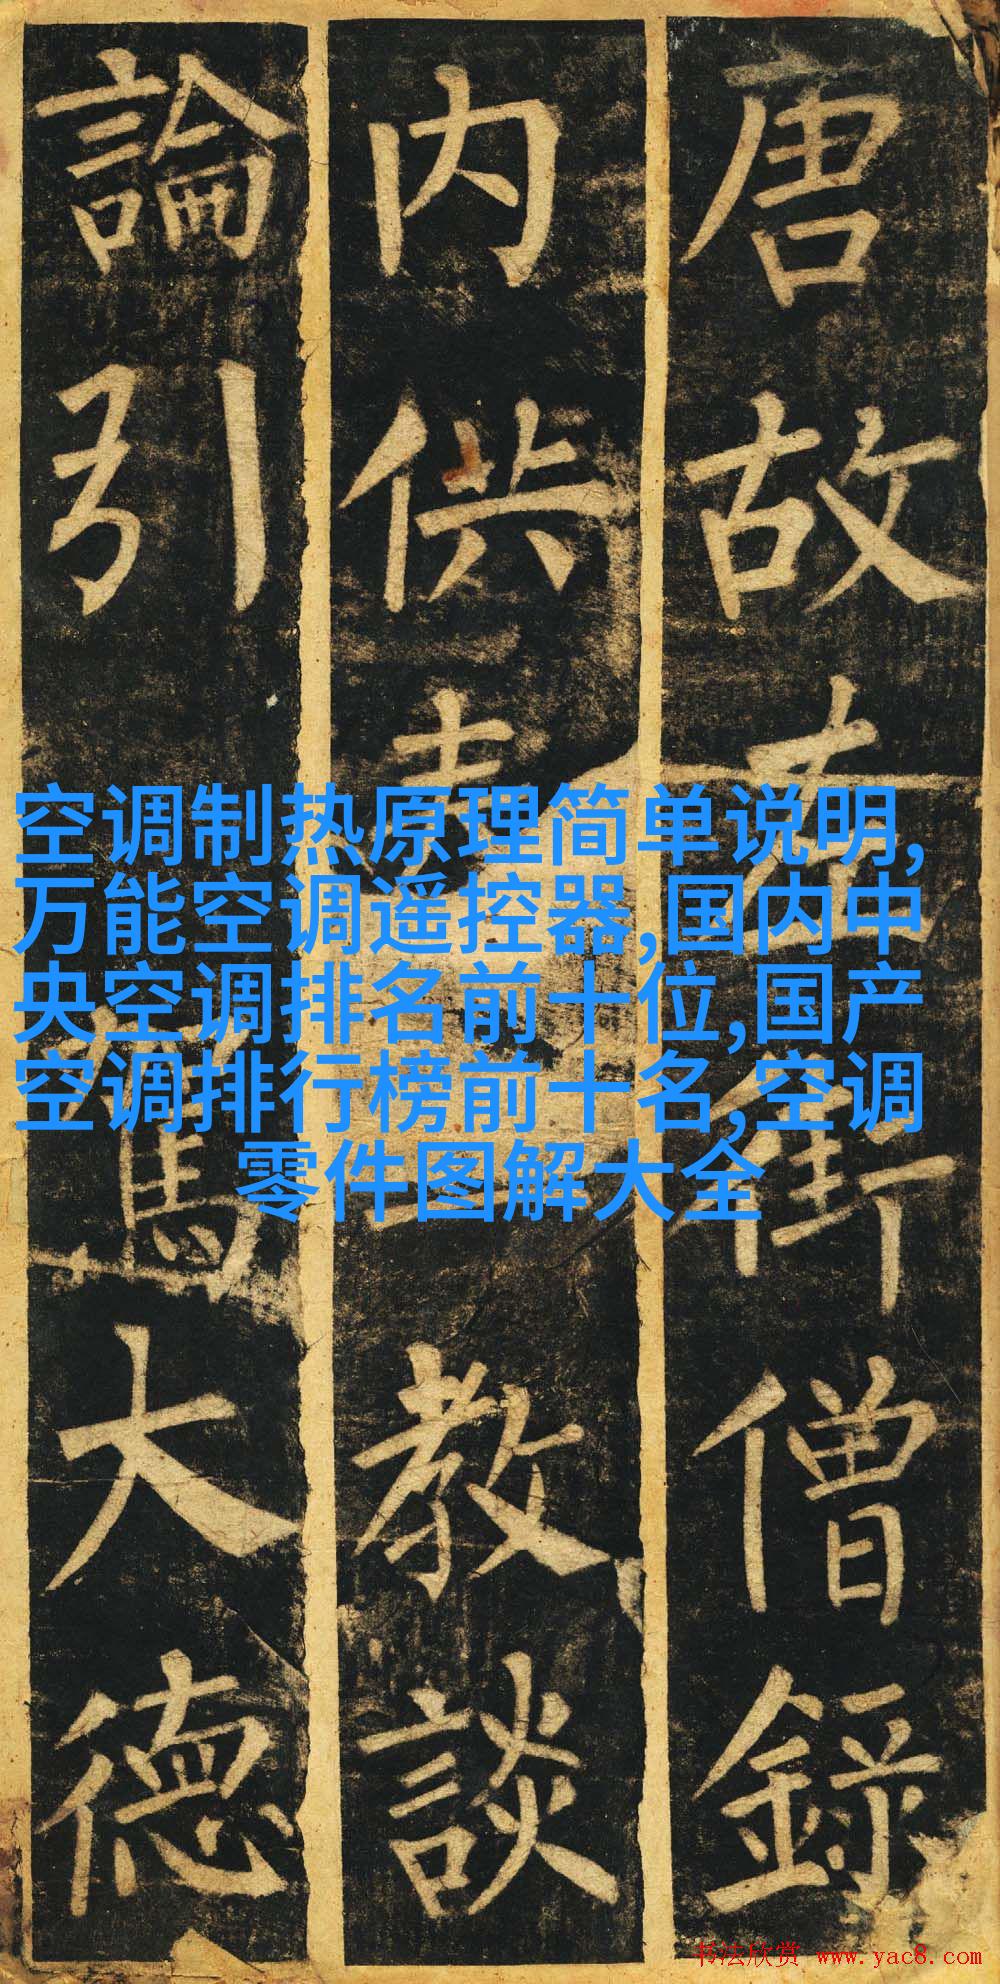 唐故左街僧錄
内供奉教談
論引駕大德
空调制热原理简单说明,
万能空调遥控器,国内中
央空调排名前十位,国产
空调排行榜前十名,空调
零件图解大全
书法欣赏 www.yac8.com